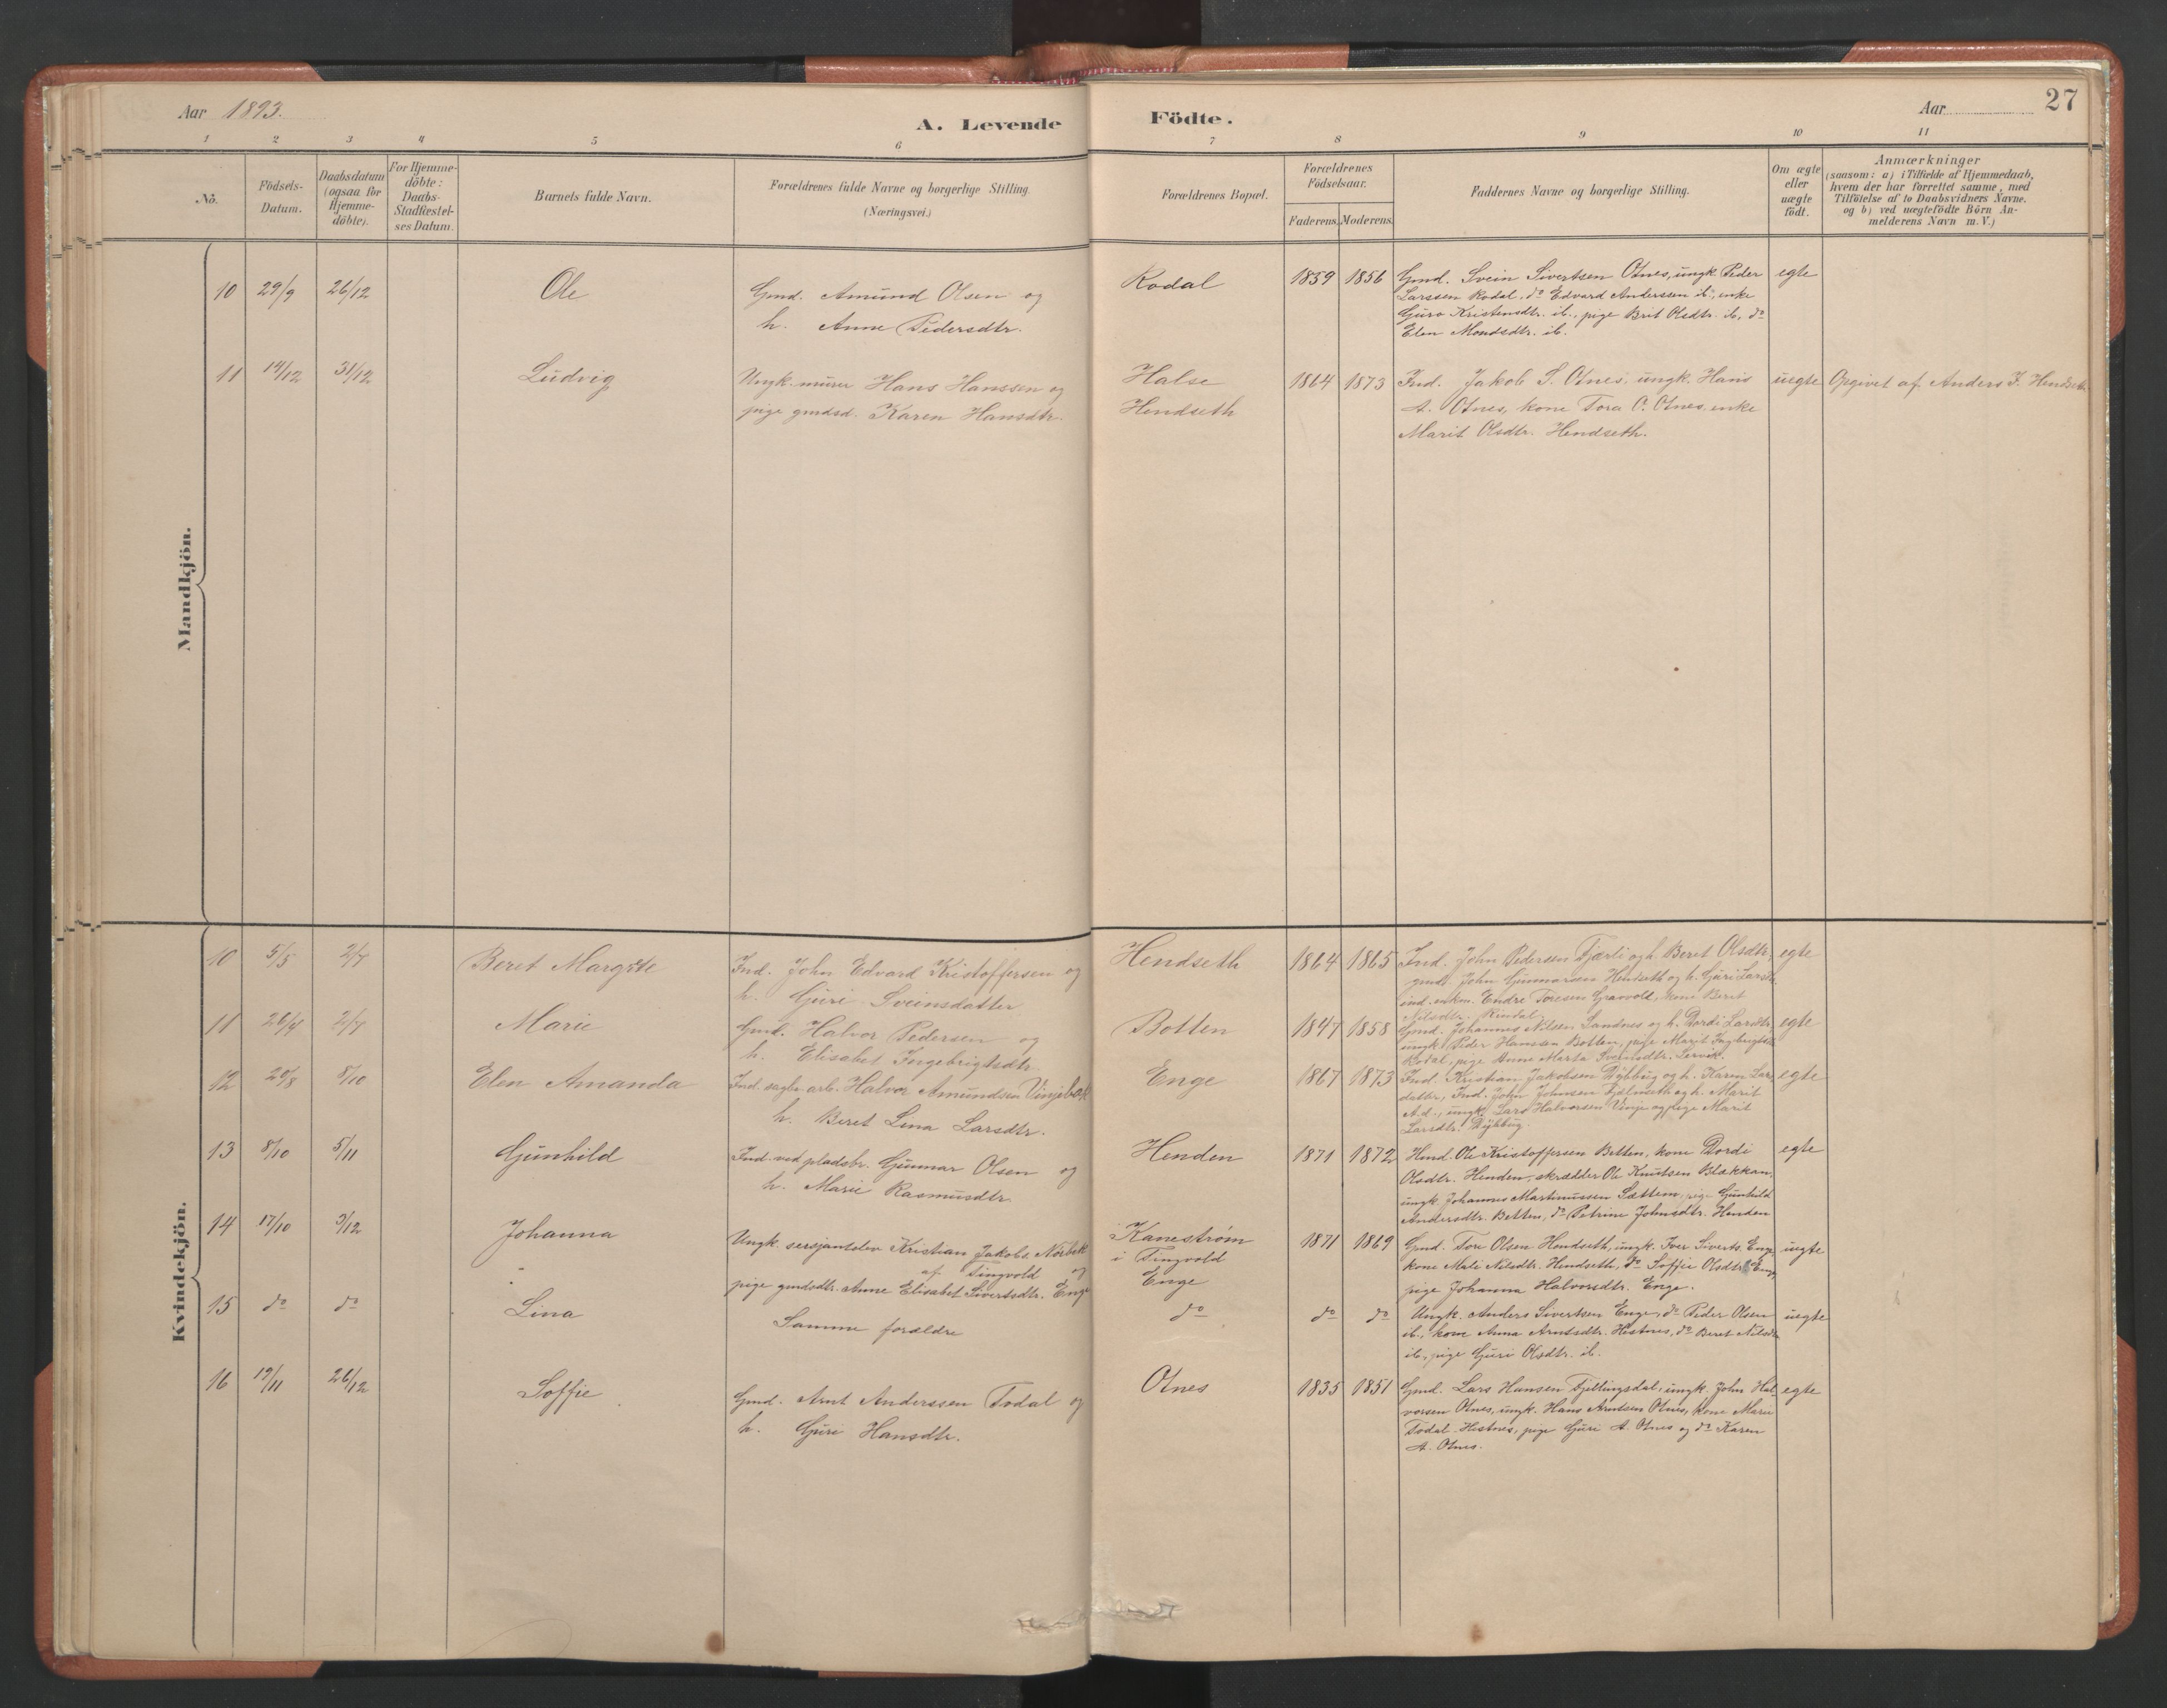 Aar 1893.
A. Levende Födte.
Aar
27
1 2 3 4 5 6 7 8 9 10 11
No.
Födsels-Datum.
Daabsdatum (ogsaa for Hjemme-döbte).
For Hjemme-döbte: Daabs-Stadfæstel-ses Datum.
Barnets fulde Navn.
Forældrenes fulde Navne og borgerlige Stilling. (Næringsvei.)
Forældrenes Bopæl.
Forældrenes Födselsaar.
Faderens. Moderens.
Faddernes Navne og borgerlige Stilling.
Om ægte eller uægte födt.
Anmærkninger
(saasom: a) i Tilfælde af Hjemmedaab,
hvem der har forrettet samme, med
Tilföielse af to Daabsvidners Navne.
og b) ved uægtefödte Börn An-
melderens Navn m. V.)
Mandkjön.
10 29/9 26/12 Ole
Gmd. Amund Olsen og
h. Anne Pedersdtr.
Rodal 1859 1856
Gmd. Svein Sivertsen Otnes, ungk. Peder
Larssen Rodal, do Edvard Anderssen ib., enke
Guro Kristensdtr. ib., pige Brit Olsdtr. ib, do
Elen Mondsdtr. ib.
egte
11 14/12 31/12 Ludvig
Ungk. murer Hans Hanssen og
pige gmdsd. Karen Hansdtr.
Halse
Hendseth
1864 1873
Ind. Jakob S. Otnes, ungk. Hans
A. Otnes, kone Tora O. Otnes, enke
Marit Olsdtr. Hendseth.
uegte
Opgivet af Anders J. Hendseth
Kvindekjön.
10 5/5 2/7 Beret Margrete
Ind. John Edvard Kristoffersen og
h. Guri Sveinsdatter
Hendseth 1864 1865
Ind. John Pedersen Fjærli og h. Beret Olsdtr,
gmd. John Gunnarsen Hendseth og h. Guri Larsdtr.
ind. enkm. Endre Toresen Granvold, kone Beret
Nilsdtr. Rindal
egte
11 26/4 2/7 Marie
Gmd. Halvor Pedersen og
h. Elisabet Ingebrigtsdtr.
Botten 1847 1858
Gmd. Johannes Nilsen Sandnes og h. Dordi Larsdtr,
ungk. Peder Hanssen Botten, pige Marit Ingebrigtsd.
Rodal, pige Anne Marta Svensdtr. Lervik.
egte
12 20/8 8/10 Elen Amanda
Ind. sagbr. arb. Halvor Amundsen Vinjebak
h. Beret Lina Larsdtr.
Enge 1867 1873
Ind. Kristian Jakobsen og h. Karen Lars
datter, Ind. John Johnsen og h. Marit
A.d., ungk. Lars Halvorsen Vinje og pige Marit
Larsdtr.
egte
13 8/10 5/11 Gunhild
Ind. ved pladsbr. Gunnar Olsen og
h. Marie Rasmusdtr.
Henden 1871 1872
Hmd. Ole Kristoffersen Betten, kone Dordi
Olsdtr. Henden, skrædder Ole Knutsen Blækkan,
ungk. Johannes Martinussen Sættem, pige Gunhild
Andersdtr. Betten, do Petrine Johnsdtr. Henden
egte
14 17/10 3/12 Johanna
Ungk. sersjantelev Kristian Jakobs. Norbek
af Tingvold og
pige gmdsdtr. Anne Elisabet Sivertsdtr. Enge
Kanestrøm
i Tingvold
Enge
1871 1869
Gmd. Tore Olsen Hendseth, ungk. Iver Siverts. Enge,
kone Mali Nilsdtr. Hendseth, do Soffie Olsdtr. Enge,
pige Johanna Halvorsdtr. Enge.
uegte
15 do do Lina
Samme forældre
do do do
Ungk. Anders Sivertsen Enge, do Peder Olsen
ib., kone Anna Arntsdtr. Hestnes, do Beret Nilsdtr.
ib., pige Guri Olsdtr. ib.
uegte
16 19/11 26/12 Soffie
Gmd. Arnt Anderssen Todal og
h. Guri Hansdtr.
Otnes 1835 1851
Gmd. Lars Hansen Fjellingsdal, ungk. John Hal
vorsen Otnes, ungk. Hans Arntsen Otnes, kone Marie
Todal Hestnes, pige Guri A. Otnes og do Karen
A. Otnes.
egte